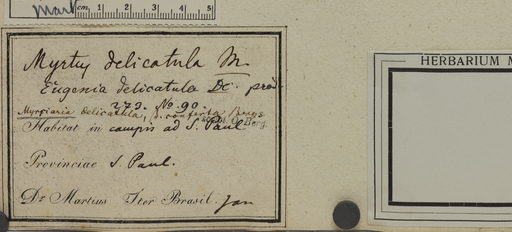 Mart
cm 1 2 3 4 5
Myrtus delicatula M.
Eugenia delicatula DC. prod.
273. No. 90.
Myrciaria delicatula, Berg.
Habitat in campis ad S. Paul
Provinciae S. Paul.
Dr Martius Iter Brasil. Jan
HERBARIUM M